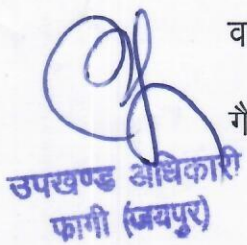 व
गै
उपखण्ड अधिकारी
फागी (जयपुर)